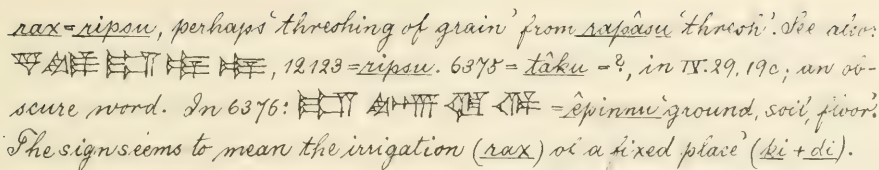 rax=ripsu, perhaps 'threshing of grain' from rapâsu 'thresh'. See also:
, 12123=ripsu. 6375=tâku=?, in IV.29,19c; an ob-
scure word. In 6376: =êpinnu 'ground, soil, floor'.
The sign seems to mean 'the irrigation (rax) of a fixed place' (ki+di).